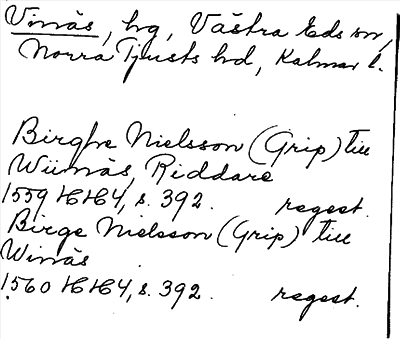 Vinäs, hg, Västra Eds sn,
Norra Tjusts hd, Kalmar l.
Birghe Nielsson (Grip) till
Wiinäs, Riddare
1559 HH4, s. 392. regest.
Birge Nielsson (Grip) till
Winäs
1560 HH4, s. 392. regest.